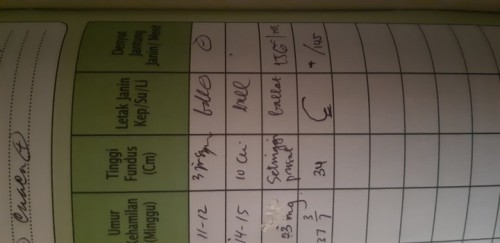 Umur
Kehamilan
(Minggu)
Tinggi
Fundus
(Cm)
Letak Janin
Kep/Su/Li
Denyut
Jantung
Janin/Menit
11-12
ball
14-15
10 cm
ball
23 mg
Setinggi
pusat
ballot
136
37 3/7
34
+/145